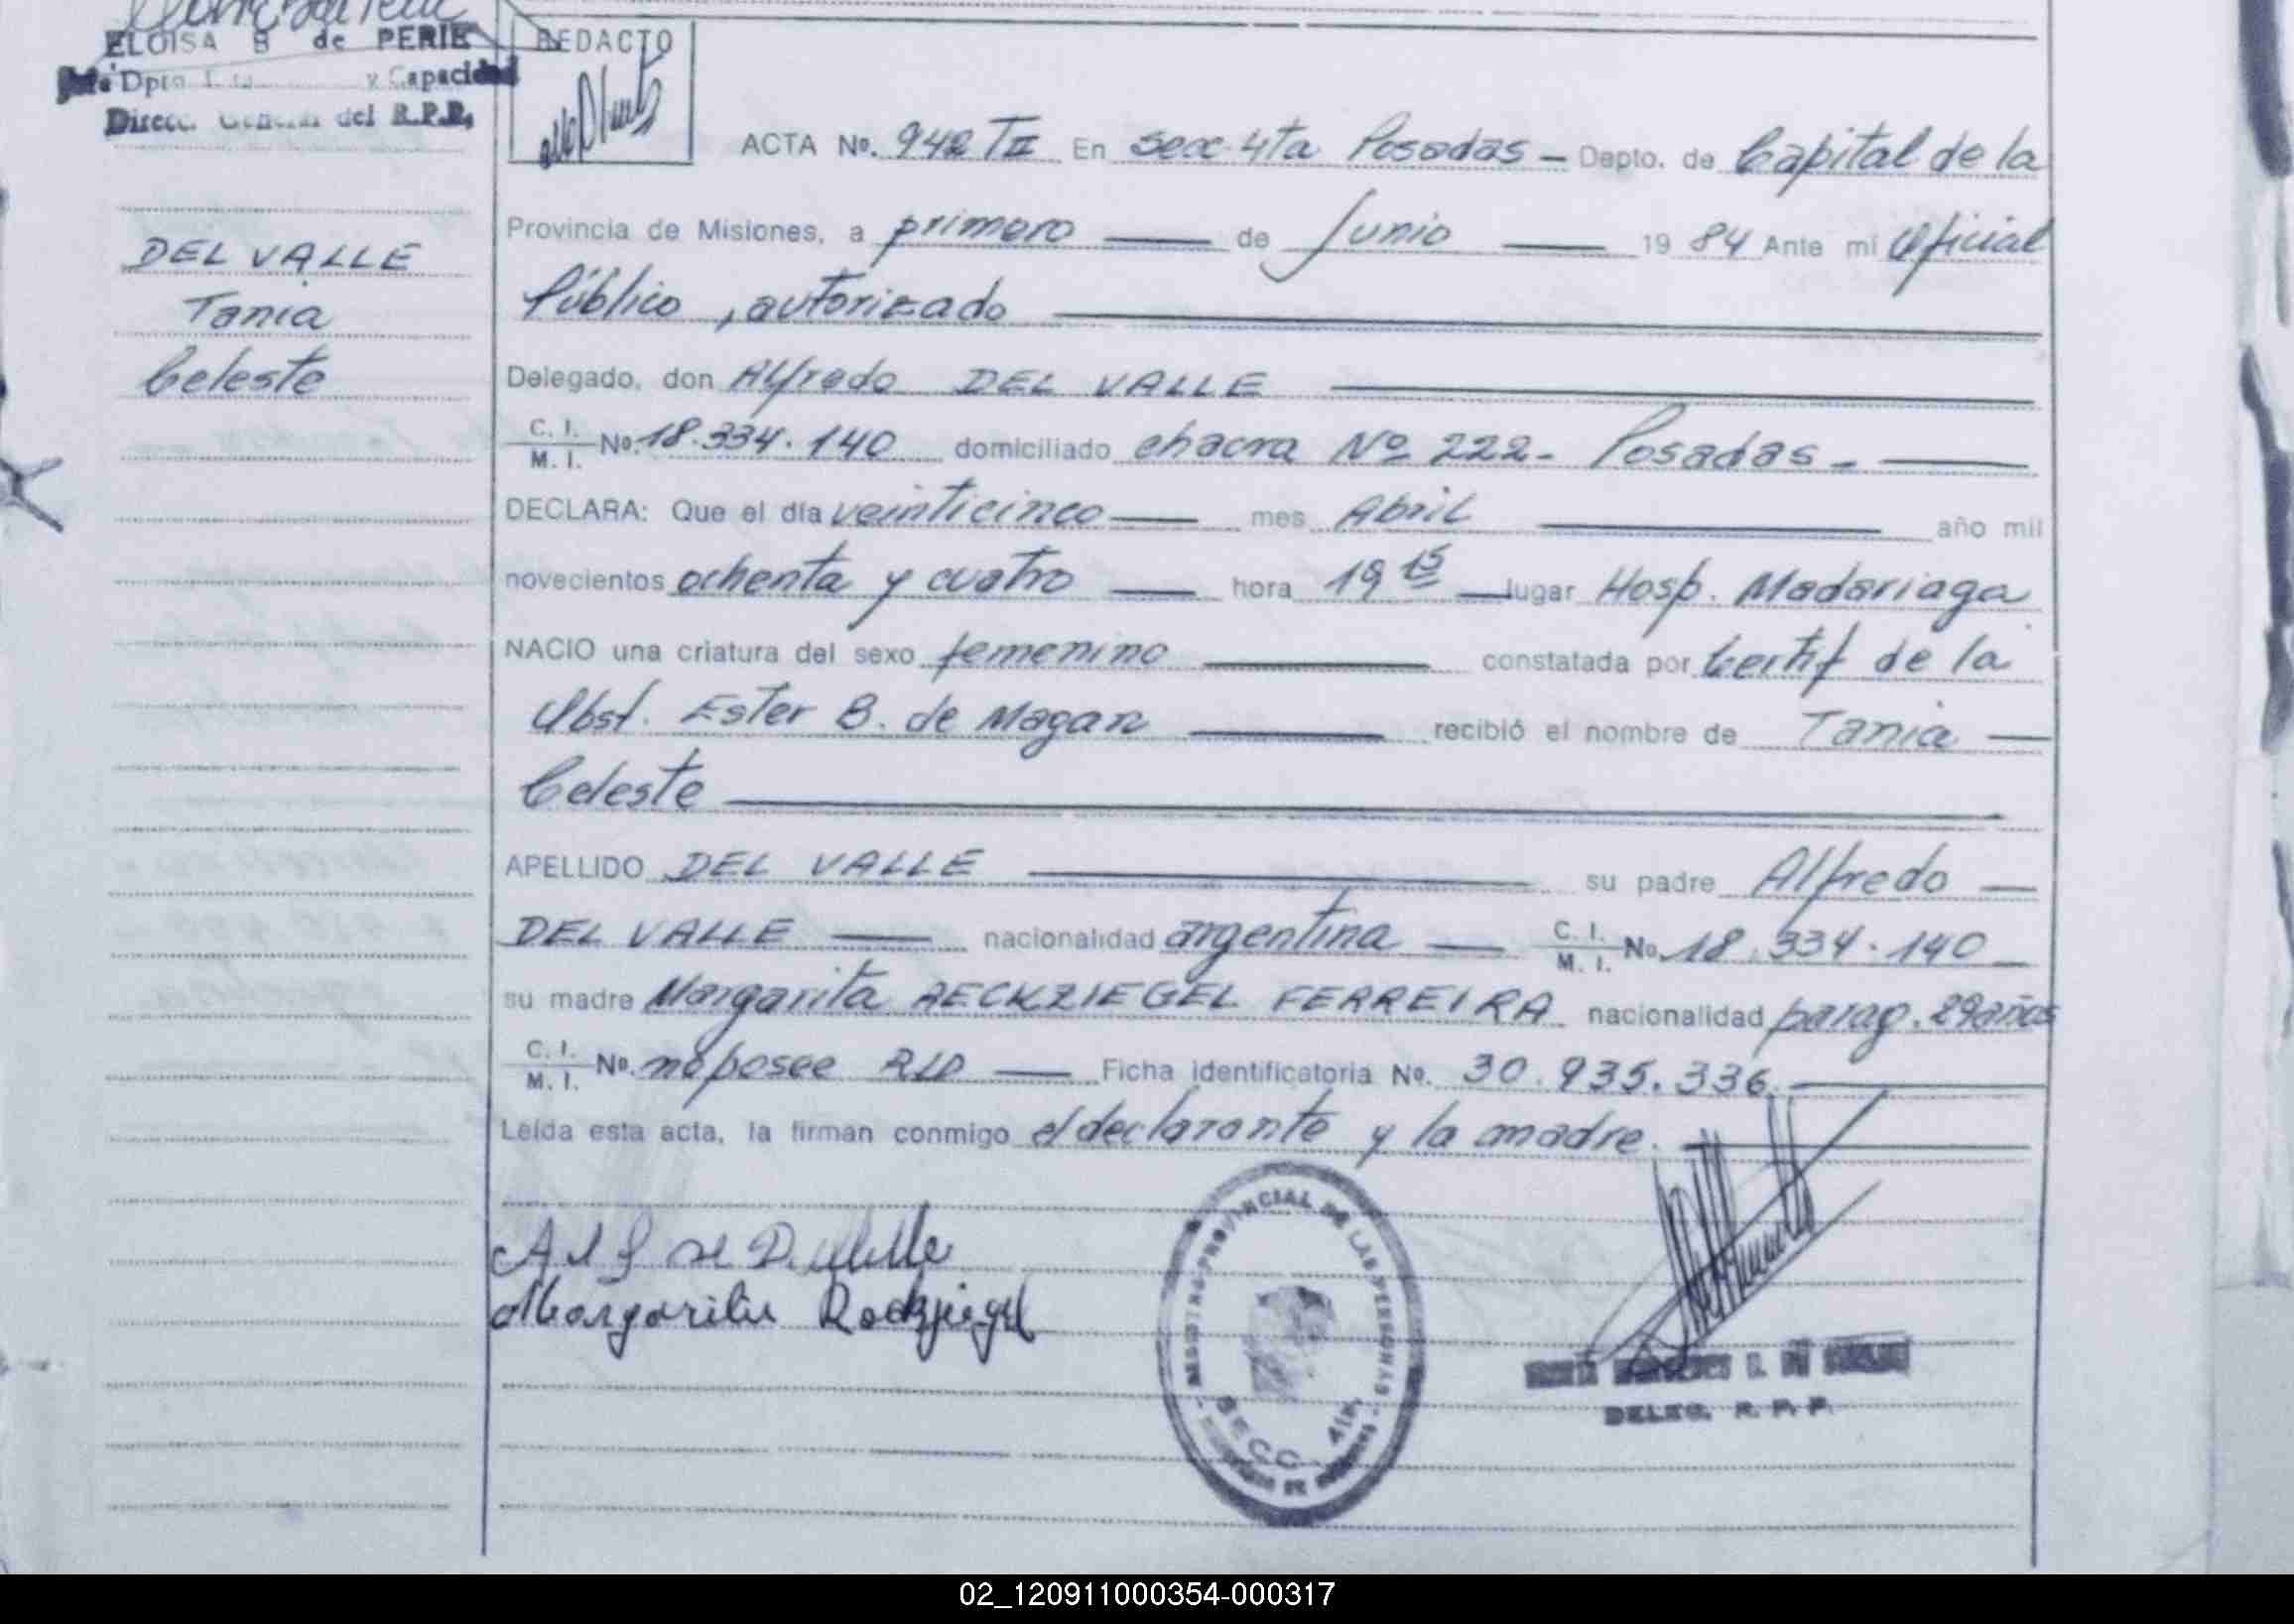 ELOISA B de PERIE
Jefe Dpto y Capacidad
Direcc. General del R.P.P.
REDACTO
ACTA No. 942 TII En secc 4ta Posadas - Depto. de Capital de la
Provincia de Misiones, a primero de Junio 1984 Ante mi Oficial
Público, autorizado
DEL VALLE
Tania
Celeste
Delegado, don Alfredo DEL VALLE
C. I. M. I. No. 18.334.140 domiciliado chacra Nº 222- Posadas -
DECLARA: Que el día veinticinco mes Abril año mil
novecientos ochenta y cuatro hora 19 15 lugar Hosp. Madariaga
NACIO una criatura del sexo femenino constatada por Certif de la
Obst. Ester B. de Magan recibió el nombre de Tania
Celeste
APELLIDO DEL VALLE su padre Alfredo
DEL VALLE nacionalidad argentina C. I. M. I. No. 18.334.140
su madre Margarita RECKZIEGEL FERREIRA nacionalidad parag. 29 años
C. I. M. I. No. no posee Ficha identificatoria No. 30.935.336.
Leída esta acta, la firman conmigo el declarante y la madre.
Margarita Reckziegel
REGISTRO PROVINCIAL DE LAS PERSONAS
SECC. 4ta
DELEG. R. P. P.
02_120911000354-000317